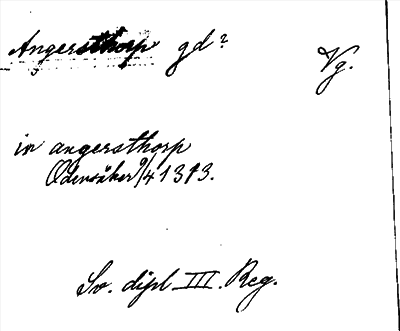 Angersthorp gd? Vg.
in angersthorp
Odensåker 9/4 1313.
Sv. dipl III. Reg.